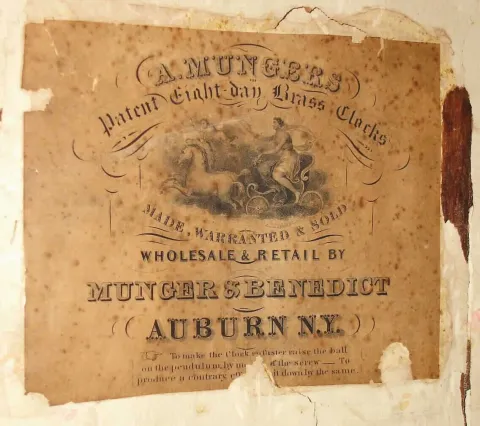 A. MUNGERS
Patent Eight-day Brass Clocks
MADE, WARRANTED & SOLD
WHOLESALE & RETAIL BY
MUNGER & BENEDICT
AUBURN N.Y.
☞ To make the Clock faster raise the ball
on the pendulum, by of the screw — To
produce a contrary down by the same.